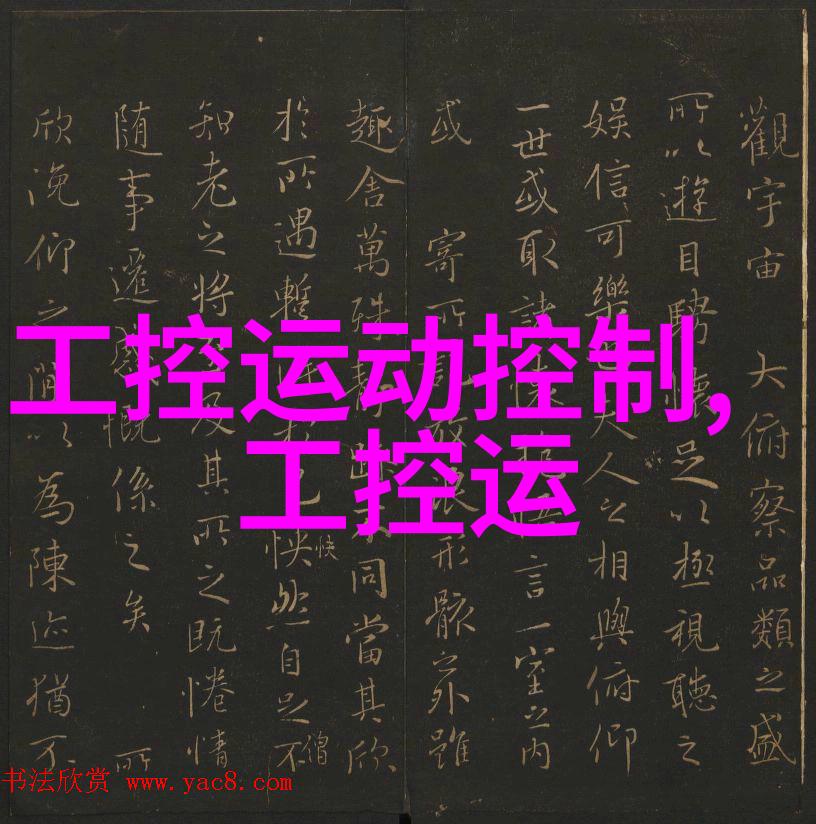 觀宇宙 大俯察品類之盛
所以遊目騁懷足以極視聽之
娛信可樂也夫人之相與俯仰
一世或取諸懷抱悟言一室之內
或 寄所託放浪形骸之外雖
趣舍萬殊靜躁不同當其欣
於所遇暫得於己怏然自足不
快
僧
知老之將至及其所之既惓情
随事遷感慨係之矣 所
欣俛仰之閒以為陳迹猶不
工控运动控制,
工控运
书法欣赏 www.yac8.com